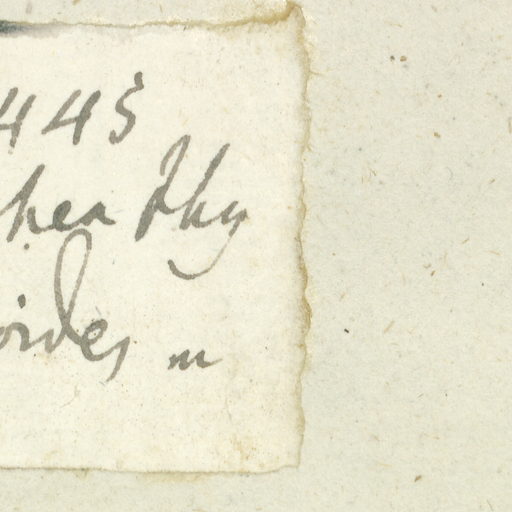 445
hea Phy
oides m